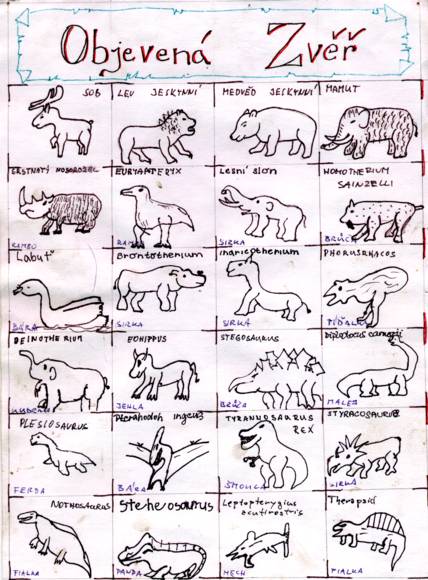 Objevená Zvěř
SOB
LEV JESKYNNÍ
MEDVĚD JESKYNNÍ
MAMUT
SRSTNATÝ NOSOROŽEC
EURYAPTERYX
Lesní slon
HOMOTHERIUM
SAINZELLI
SIRKA
Labuť
Brontotherium
Indricotherium
PHORUSRHACOS
BÁRA
SIRKA
SIRKA
DEINOTHERIUM
EOHIPPUS
STEGOSAURUS
Diplodocus carnegii
JEHLA
BRÚZA
MALEJ
PLESIOSAURUS
Pteranodon ingens
TYRANNOSAURUS
REX
STYRACOSAURUS
FERDA
BÁRA
ŠMOULA
SIRKA
NOTHOSAURUS
Steneosaurus
Leptopterygius
acutirostris
Therapsid
FIALKA
PANDA
MECH
FIALKA